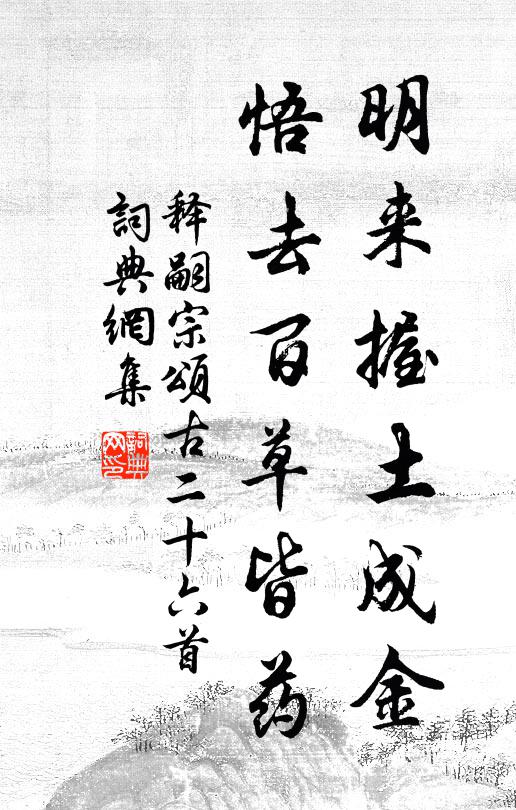 明来握土成金
悟去百草皆药
释嗣宗颂古二十六首
詞典網集